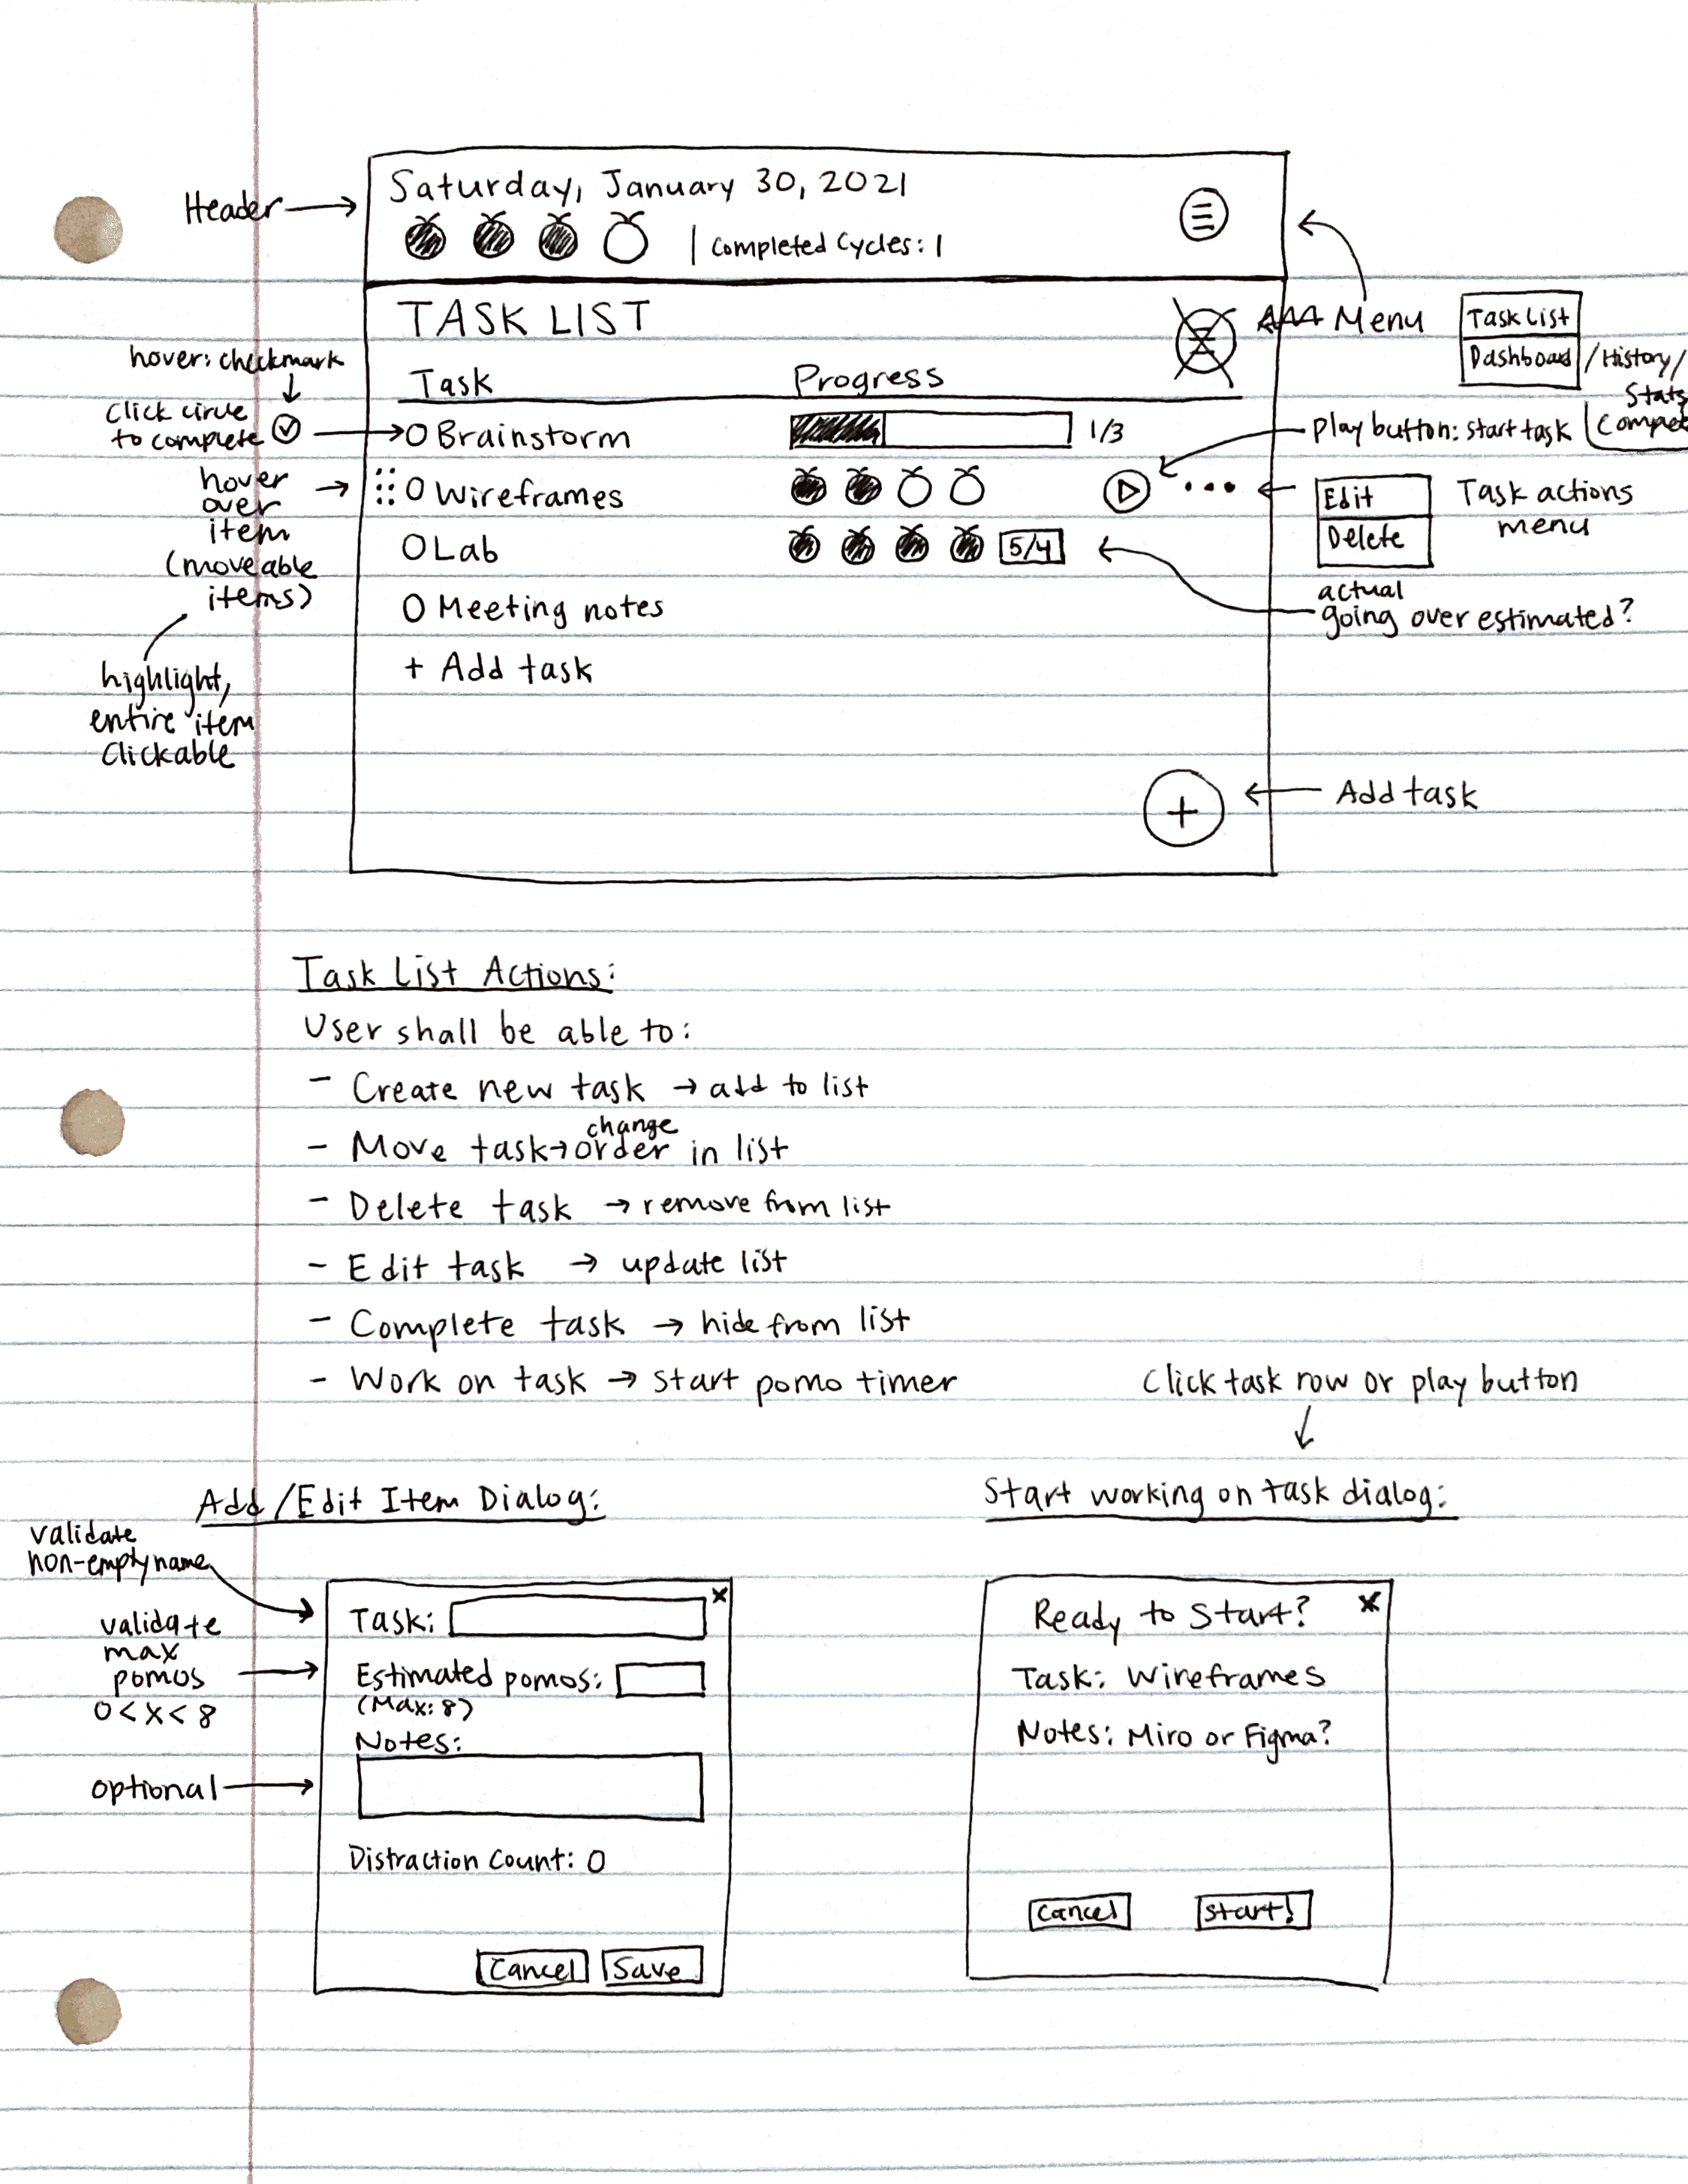 Header
Saturday, January 30, 2021
| Completed Cycles: 1
TASK LIST
Menu
Task List
Dashboard /History/
Stats
hover: checkmark
click circle
to complete
Task
Progress
O Brainstorm
1/3
play button: start task
hover
over
item
(moveable
items)
O Wireframes
Edit
Delete
Task actions
menu
O Lab
5/4
actual
going over estimated?
O Meeting notes
+ Add task
highlight,
entire item
clickable
+
Add task
Task List Actions:
User shall be able to:
- Create new task → add to list
- Move task → change order in list
- Delete task → remove from list
- Edit task → update list
- Complete task → hide from list
- Work on task → start pomo timer
Click task row or play button
Add/Edit Item Dialog:
validate
non-empty name
validate
max
pomos
0 < x < 8
optional
x
Task:
Estimated pomos:
(Max: 8)
Notes:
Distraction Count: 0
Cancel Save
Start working on task dialog:
Ready to Start? x
Task: Wireframes
Notes: Miro or Figma?
Cancel Start!